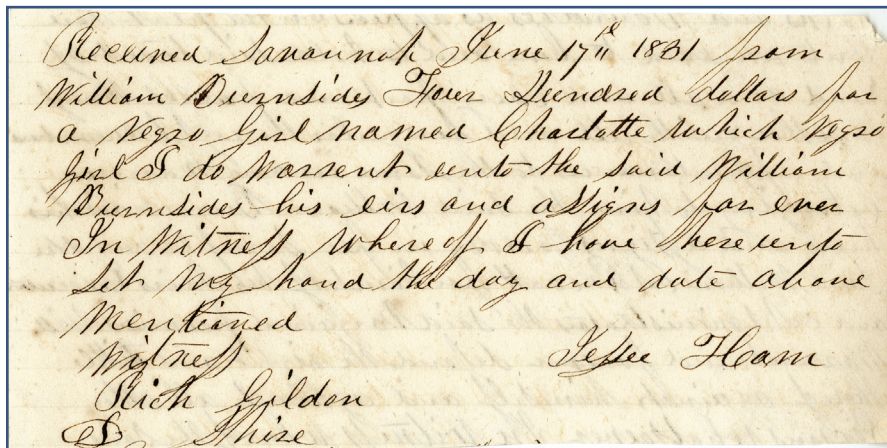 Received Savannah June 17th 1831 from
William Burnsides Four Hundred dollars for
a Negro Girl named Charlotte which Negro
Girl I do Warrent unto the said William
Burnsides his eirs and assigns for ever
In Witness Where off I have here unto
Set my hand the day and date above
Mentioned
Witness Jesse Ham
Rich Gildon